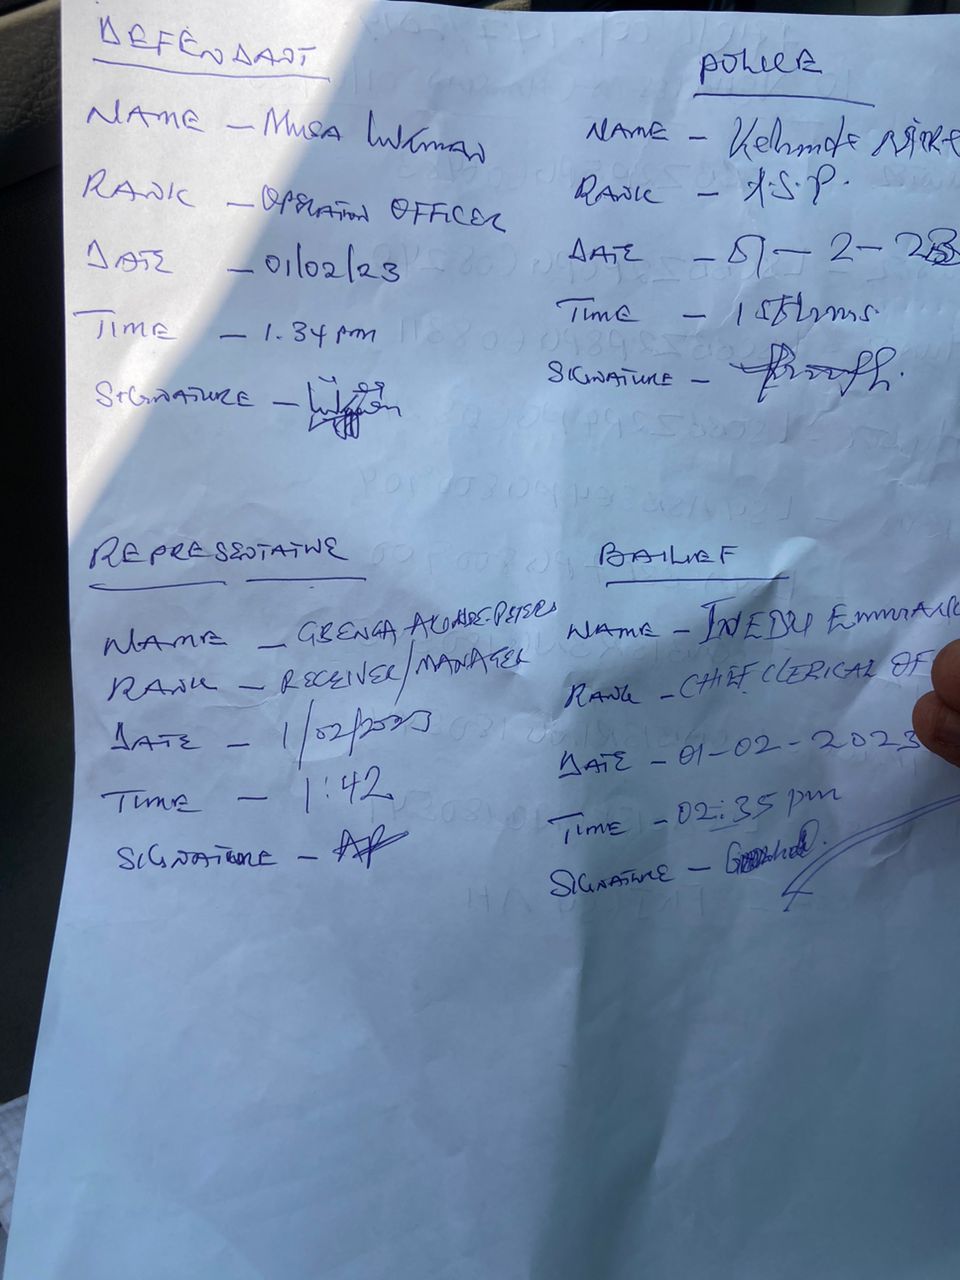 DEFENDANT
NAME - Musa Lukman
RANK - OPERATION OFFICER
DATE - 01/02/23
TIME - 1.34 pm
SIGNATURE -
POLICE
NAME -
RANK - A.S.P.
DATE - 01 - 2 - 23
TIME -
SIGNATURE -
REPRESENTATIVE
NAME - GBENGA AKUADE-PETERS
RANK - RECEIVER/MANAGER
DATE - 1/02/2023
TIME - 1:42
SIGNATURE -
BAILIEF
NAME - INEDU
RANK - CHIEF CLERICAL OF
DATE - 01-02-2023
TIME - 02:35 pm
SIGNATURE -